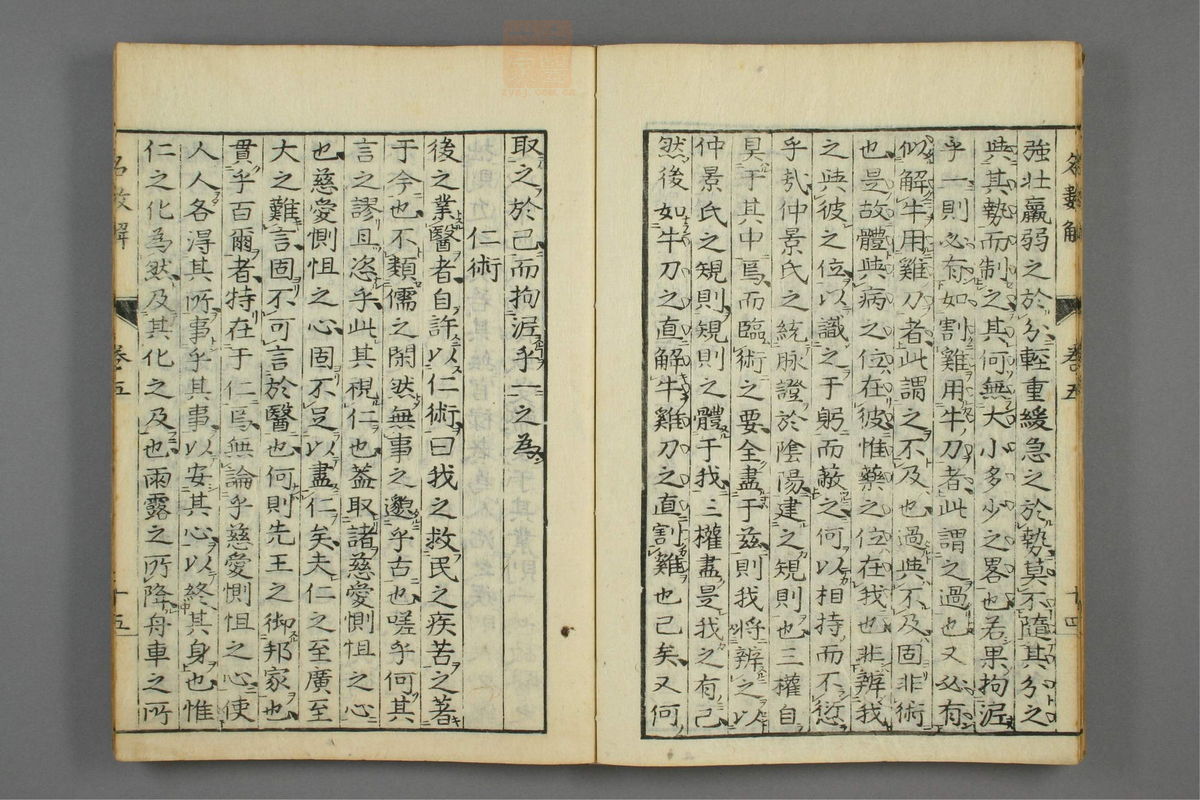 強壯羸弱之於分輕重緩急之於勢莫不隨其分之
與其勢而制之其何無大小多少之畧也若果拘泥
乎一則必有如割雞用牛刀者此謂之過也又必有
似解牛用雞刀者此謂之不及也過與不及固非術
也是故體與病之位在彼惟藥之位在我也非辨我
之與彼之位以識之于躬而蔽之何以相持而不愆
乎哉仲景氏之統脉證於陰陽建之規則也三權自
具于其中焉而臨術之要全盡于兹則我將辨之以
仲景氏之規則規則之體于我三權盡是我之有已
然後如牛刀之直解牛雞刀之直割雞也已矣又何
卷五
十四
取之於己而拘泥乎一之為
仁術
後之業醫者自許以仁術曰我之救民之疾苦之著
于今也不類儒之閑然無事之邈乎古也嗟乎何其
言之謬且恣乎此其視仁也蓋取諸慈愛惻怛之心
也慈愛惻怛之心固不足以盡仁矣夫仁之至廣至
大之難言固不可言於醫也何則先王之御邦家也
貫乎百爾者特在于仁焉無論乎慈愛惻怛之心使
人人各得其所事乎其事以安其心以終其身也惟
仁之化為然及其化之及也雨露之所降舟車之所
卷五
十五